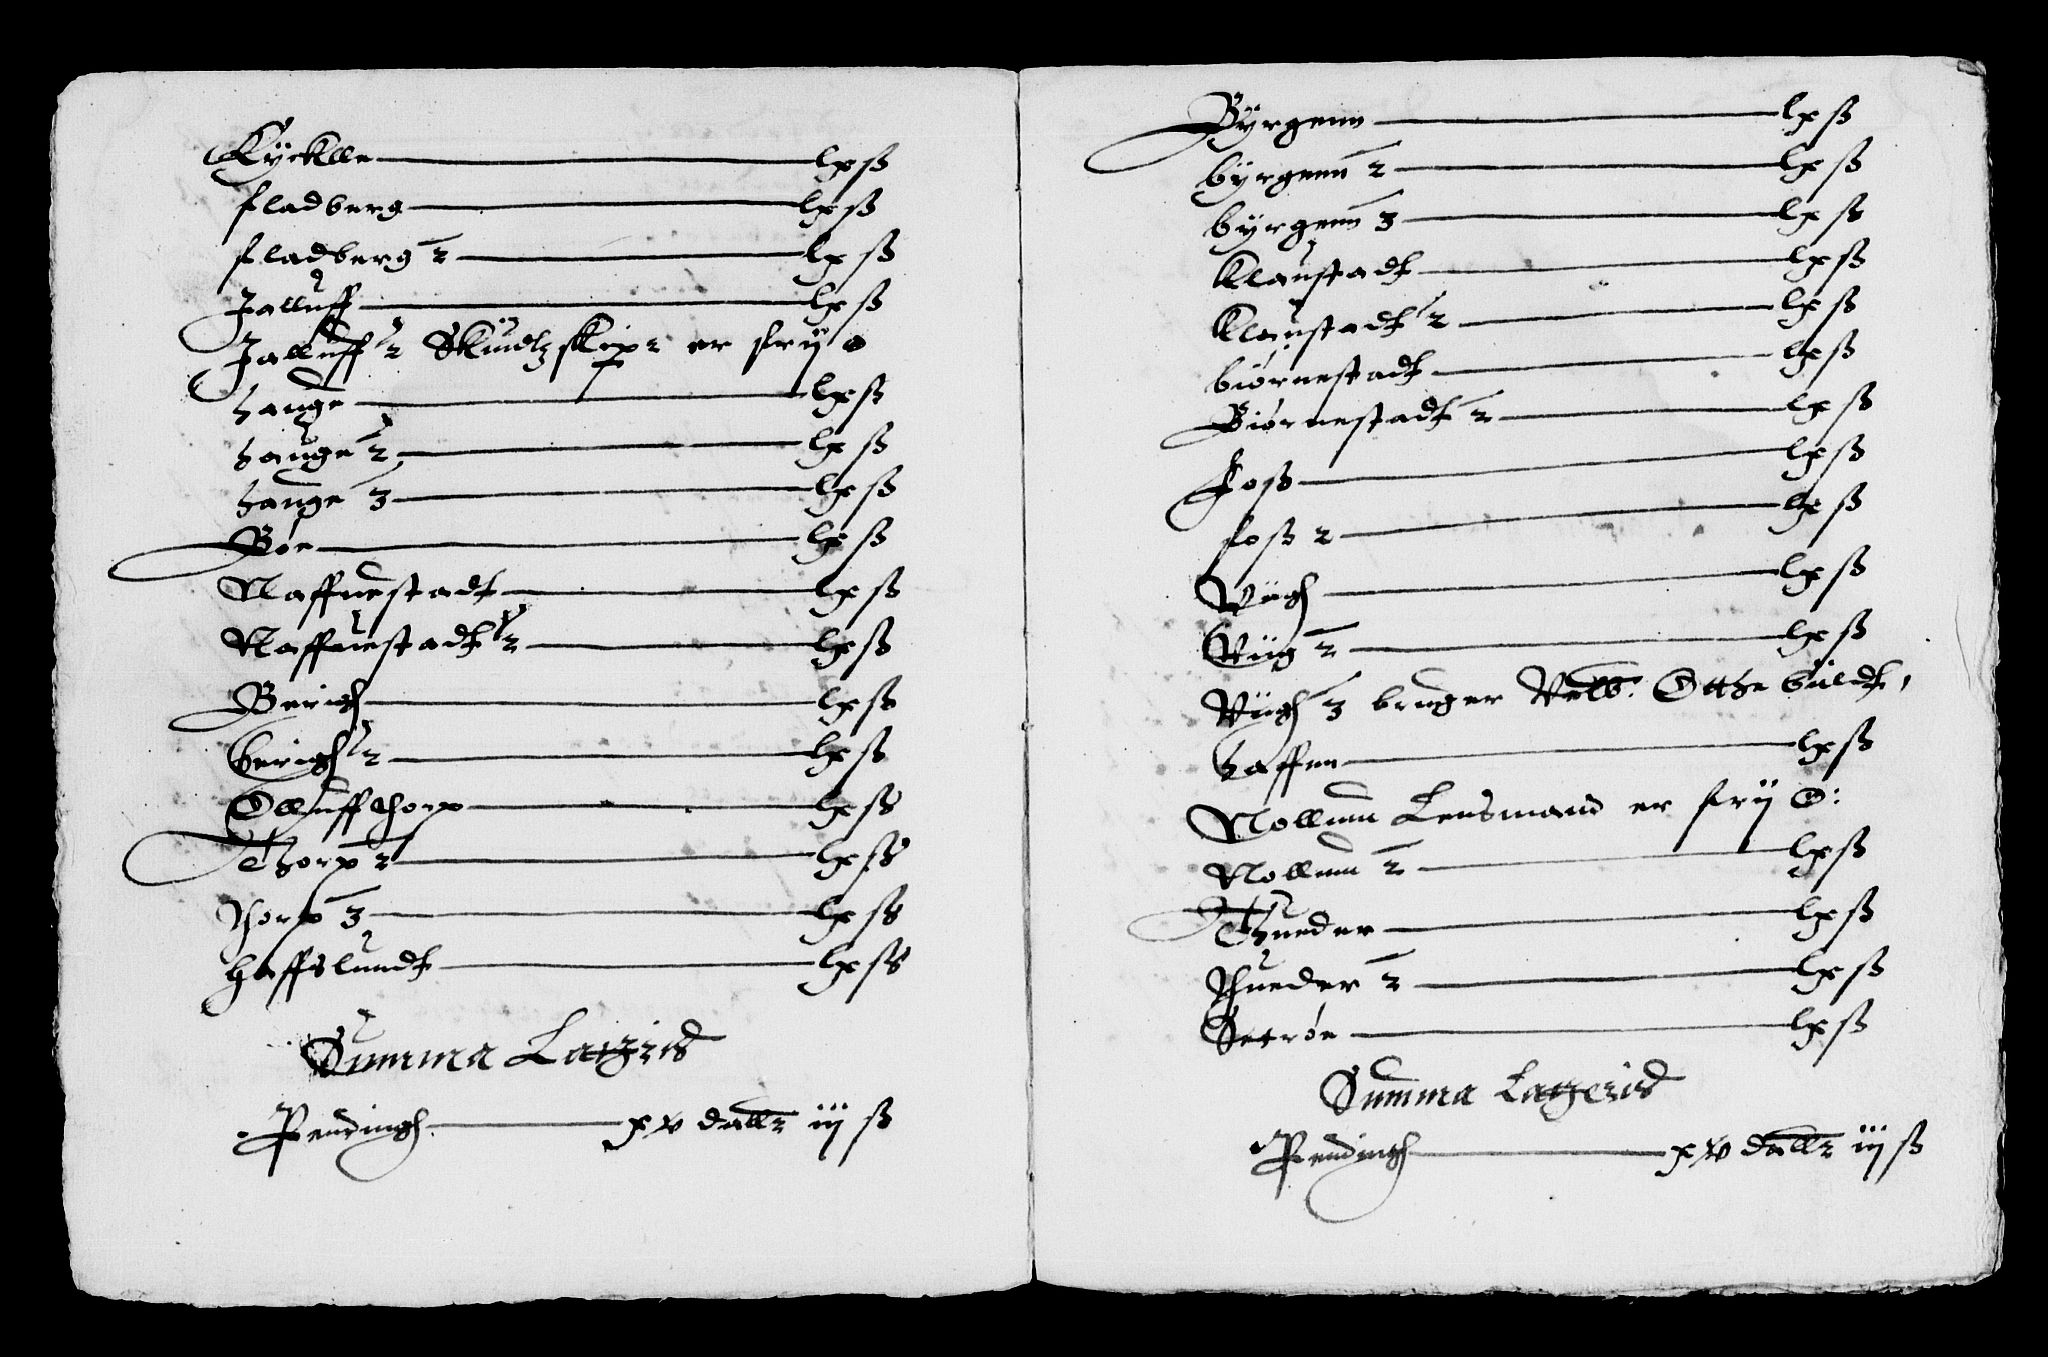 Kÿcklle lxß
fladberg lxß
fladberg 2 lxß
Jalluff lxß
Jalluff 2 Skÿdtzskipr er frij o
Hauge lxß
Hauge 2 lxß
Hauge 3 lxß
Bøe lxß
Naffuestadt lxß
Naffuestadt 2 lxß
Berigh lxß
Berigh 2 lxß
Olluffthorp lxß
Thorp 2 lxß
Thorp 3 lxß
Haffslundt lxß
Summa Lateris
Pendingh xv dallr iijß
Bÿrgenn lxß
bÿrgenn 2 lxß
bÿrgenn 3 lxß
Klaustadt lxß
Klaustadt 2 lxß
biørnestadt lxß
Biørnestadt 2 lxß
Foss lxß
foss 2 lxß
Wiigh lxß
Wiig 2 lxß
Wiigh 3 bruger Velb. Otthe bildt,
Haffen lxß
Nollum Lensmand er frij O:
Nollum 2 lxß
Thueder lxß
Thueder 2 lxß
Setrøe lxß
Summa Lateris
Pendingh xv dallr iijß